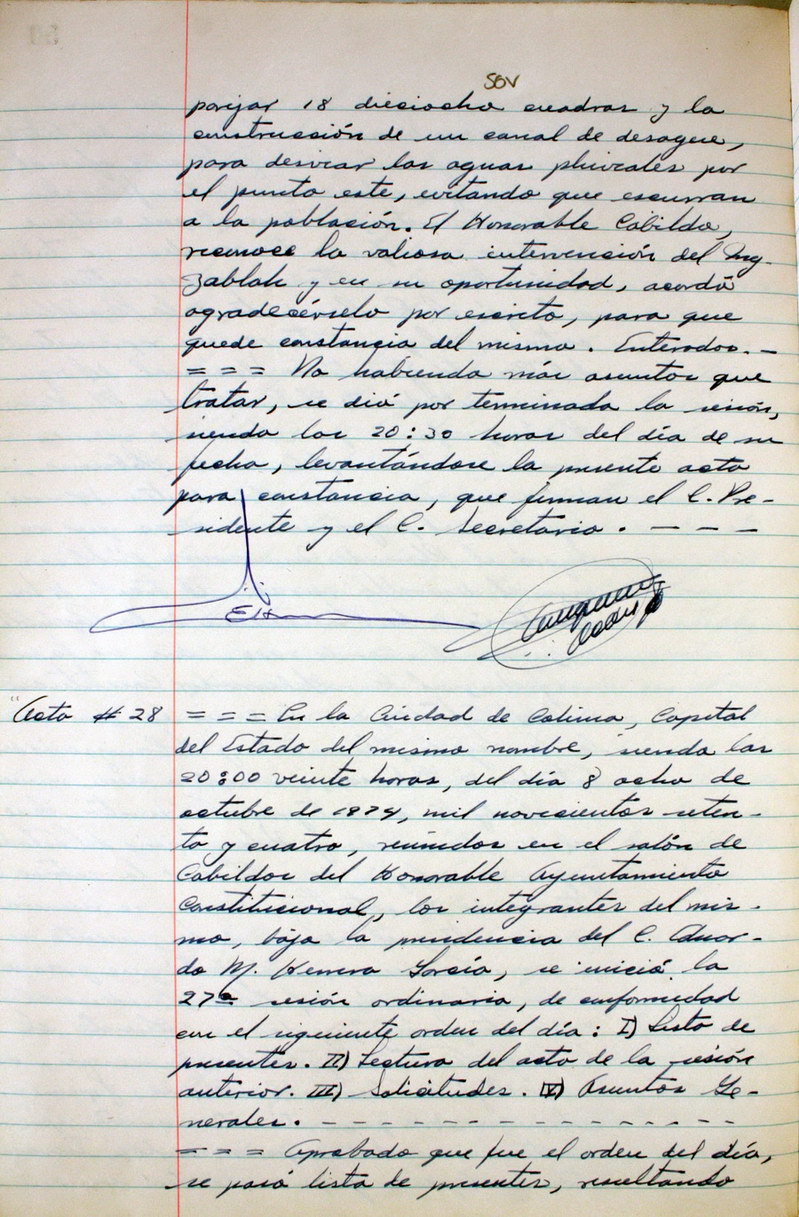 50V
parejar 18 dieciocho cuadras y la
construcción de un canal de desague,
para desviar las aguas pluviales por
el punto este, evitando que escurran
a la población. El Honorable Cabildo,
reconoce la valiosa intervención del Ing.
Zablah y en su oportunidad, acordó
agradecérselo por escrito, para que
quede constancia del mismo. Enterados. -
= = = No habiendo más asuntos que
tratar, se dió por terminada la sesión,
siendo las 20:30 horas del día de su
fecha, levantándose la presente acta
para constancia, que firman el C. Pre-
sidente y el C. Secretario. - - -
Acta # 28 = = = En la Ciudad de Colima, Capital
del Estado del mismo nombre, siendo las
20:00 veinte horas, del día 8 ocho de
octubre de 1974, mil novecientos seten-
ta y cuatro, reunidos en el salón de
Cabildos del Honorable Ayuntamiento
Constitucional, los integrantes del mis-
mo, bajo la presidencia del C. Eduar-
do M. Herrera García, se inició la
27a sesión ordinaria, de conformidad
con el siguiente orden del día: I) Lista de
presentes. II) Lectura del acta de la sesión
anterior. III) Solicitudes. IV) Asuntos Ge-
nerales. - - - - - - - - - - - - - - - -
= = = Aprobado que fue el orden del día,
se pasó lista de presentes, resultando